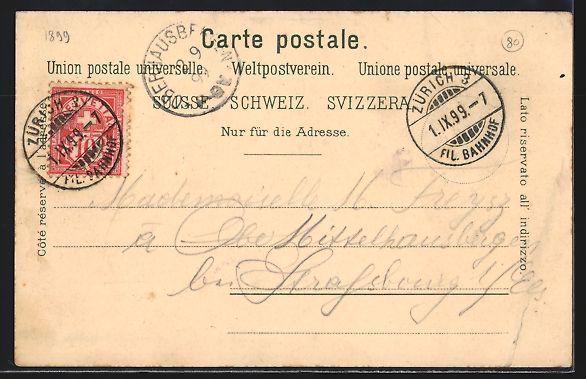 1899
80
Carte postale.
Union postale universelle. Weltpostverein. Unione postale universale.
SUISSE. SCHWEIZ. SVIZZERA.
Nur für die Adresse.
Côté réservé à l'adresse.
Lato riservato all' indirizzo.
ZÜRICH
1.IX.99.-7
FIL. BAHNHOF
10
OBERHAUSBERGEN
2 9
ZÜRICH 3
1.IX.99.-7
FIL. BAHNHOF
Mademoiselle M
à Ober Mittelhausbergen
bei Straßburg i/Els